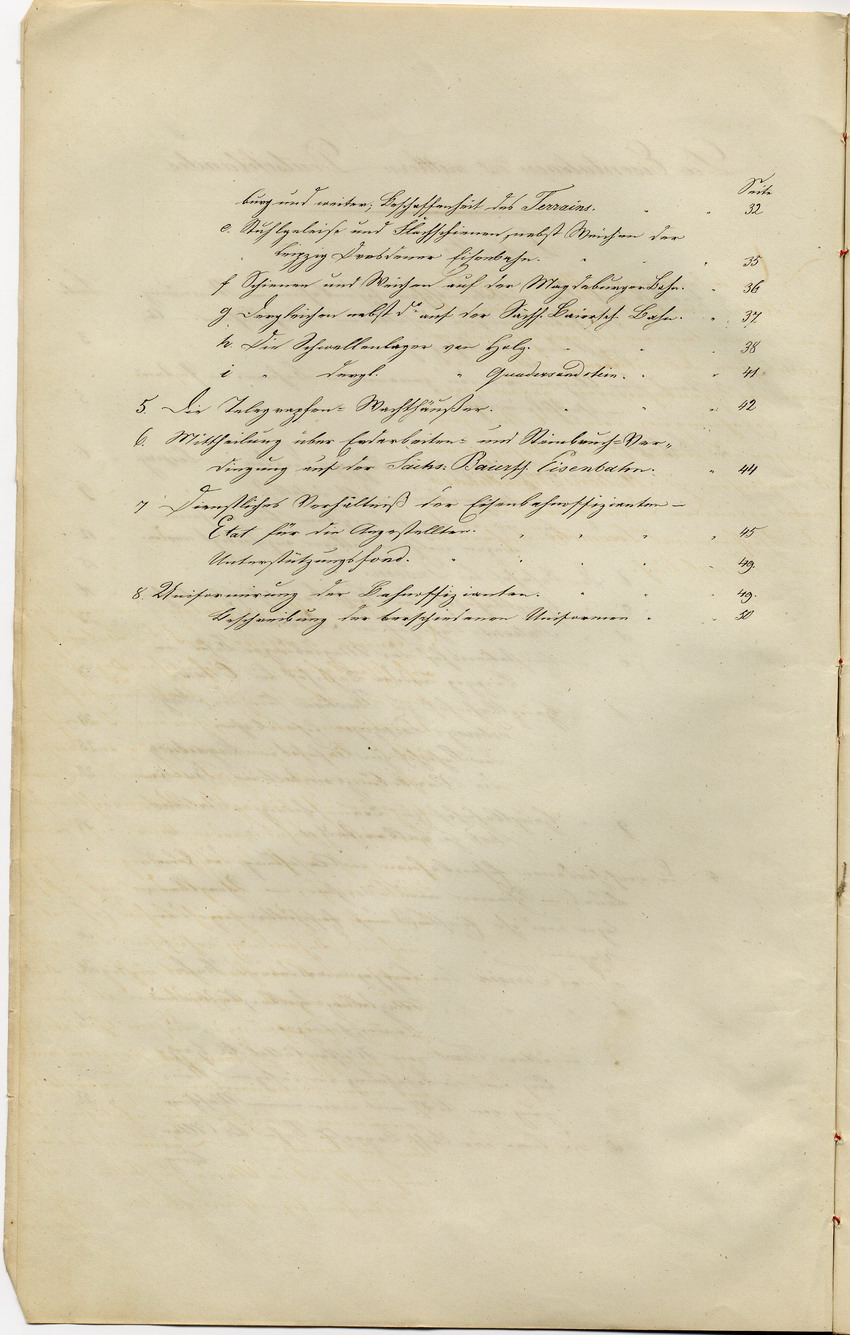 Seite
burg und weiter; Beschaffenheit des Terrains. " " 32
e. Stuhlgeleise und Flachschienen, nebst Weichen der
Leipzig Dresdener Eisenbahn. " " " 35
f Schienen und Weichen auf der Magdeburger Bahn. " 36
g Dergleichen nebst do auf der Sächs. Baiersch. Bahn. " 37
h. Die Schwellenlager von Holz. " " " 38
i " dergl. " Quadersandstein. " " 41
5. Die Telegraphen= Wachthäußer. " " " 42
6. Mittheilung über Erdarbeiten= und Steinbruch=Ver„
dingung auf der Sächs: Baiersch. Eisenbahn. " 44
7 Dienstliches Verhältniß der Eisenbahnoffizianten –
Etat für die Angestellten. " " " " 45
Unterstützungsfond. " " " " 49.
8. Uniformirung der Bahnoffizianten. " " " 49.
Beschreibung der verschiedenen Uniformen " " 50